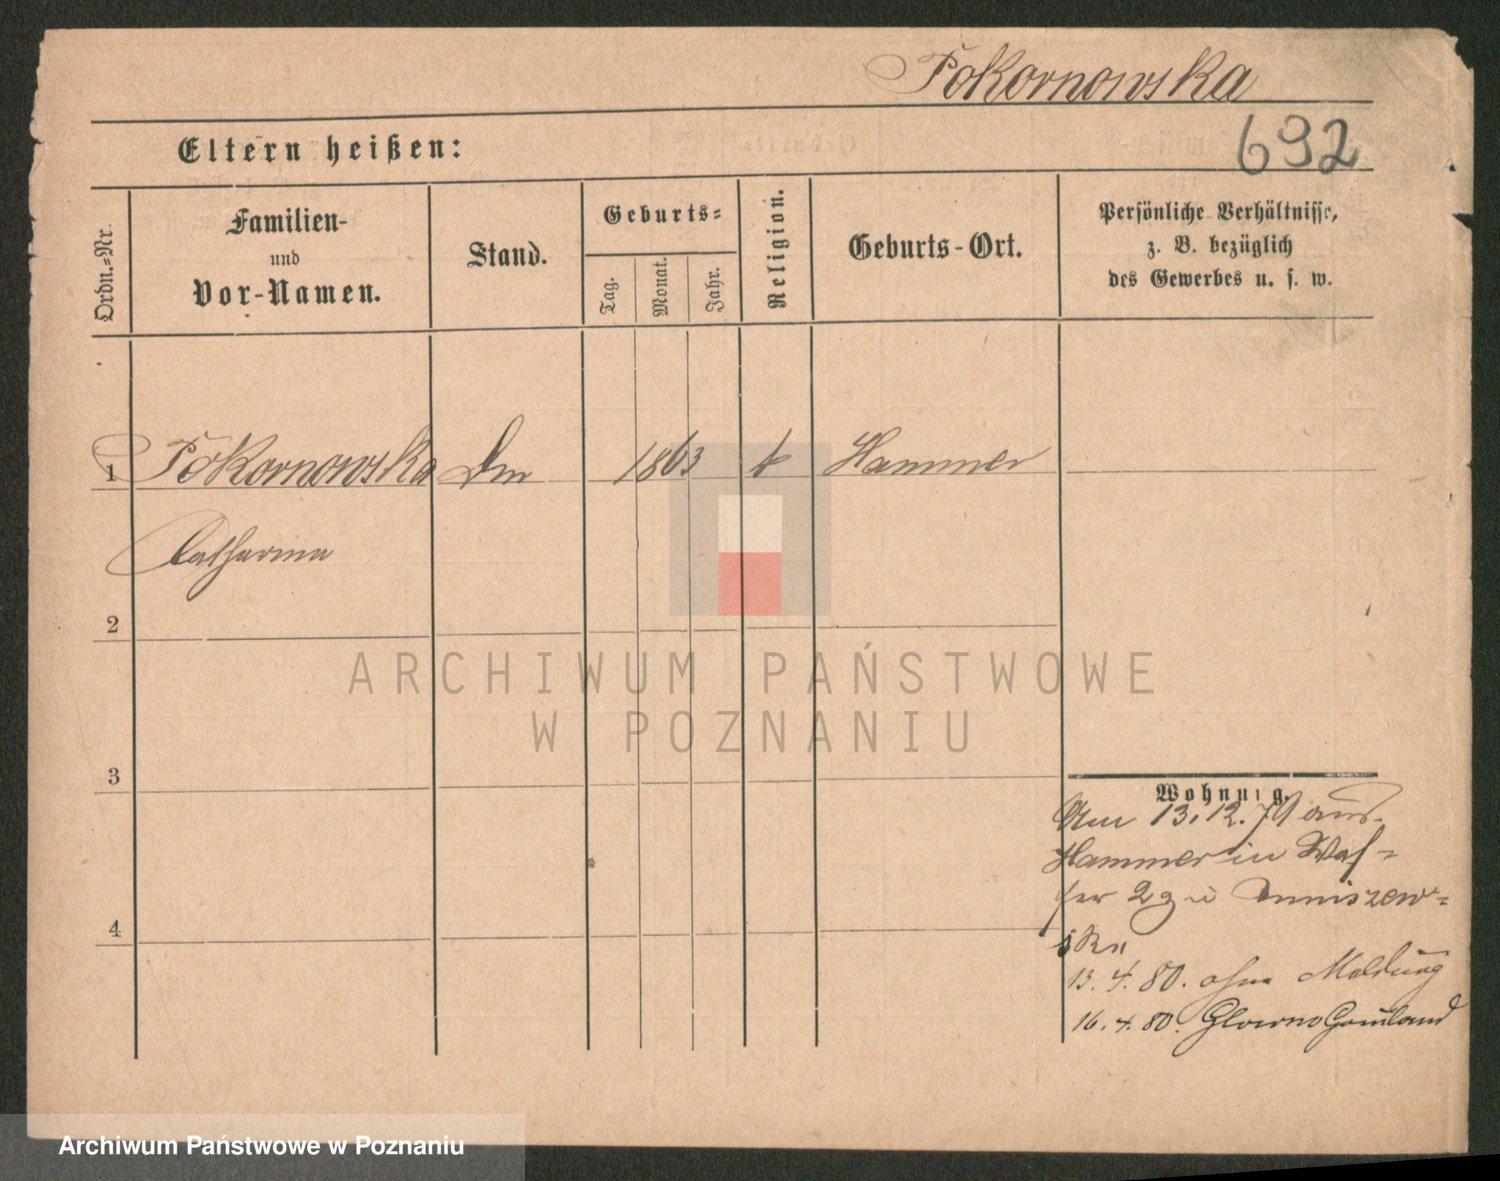 Pokornowska
692
Eltern heißen:
Ordn.-Nr.
Familien-
und
Vor-Namen.
Stand.
Geburts-
Tag.
Monat.
Jahr.
Religion.
Geburts-Ort.
Persönliche Verhältnisse,
z. B. bezüglich
des Gewerbes u. s. w.
1 Pokornowska Dm 1863 k Hammer
Catharina
2
3
4
Wohnung.
Am 13.12.79 aus
Hammer in Was-
ser 2 zu
13.4.80. ohne Meldung
16.4.80. Glowno
ARCHIWUM PAŃSTWOWE
W POZNANIU
Archiwum Państwowe w Poznaniu